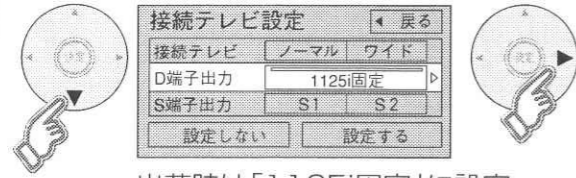 接続テレビ設定 ◀ 戻る
接続テレビ ノーマル ワイド
D端子出力 1125i固定
S端子出力 S1 S2
設定しない 設定する
決定
決定
出荷時は「1125i固定」に設定